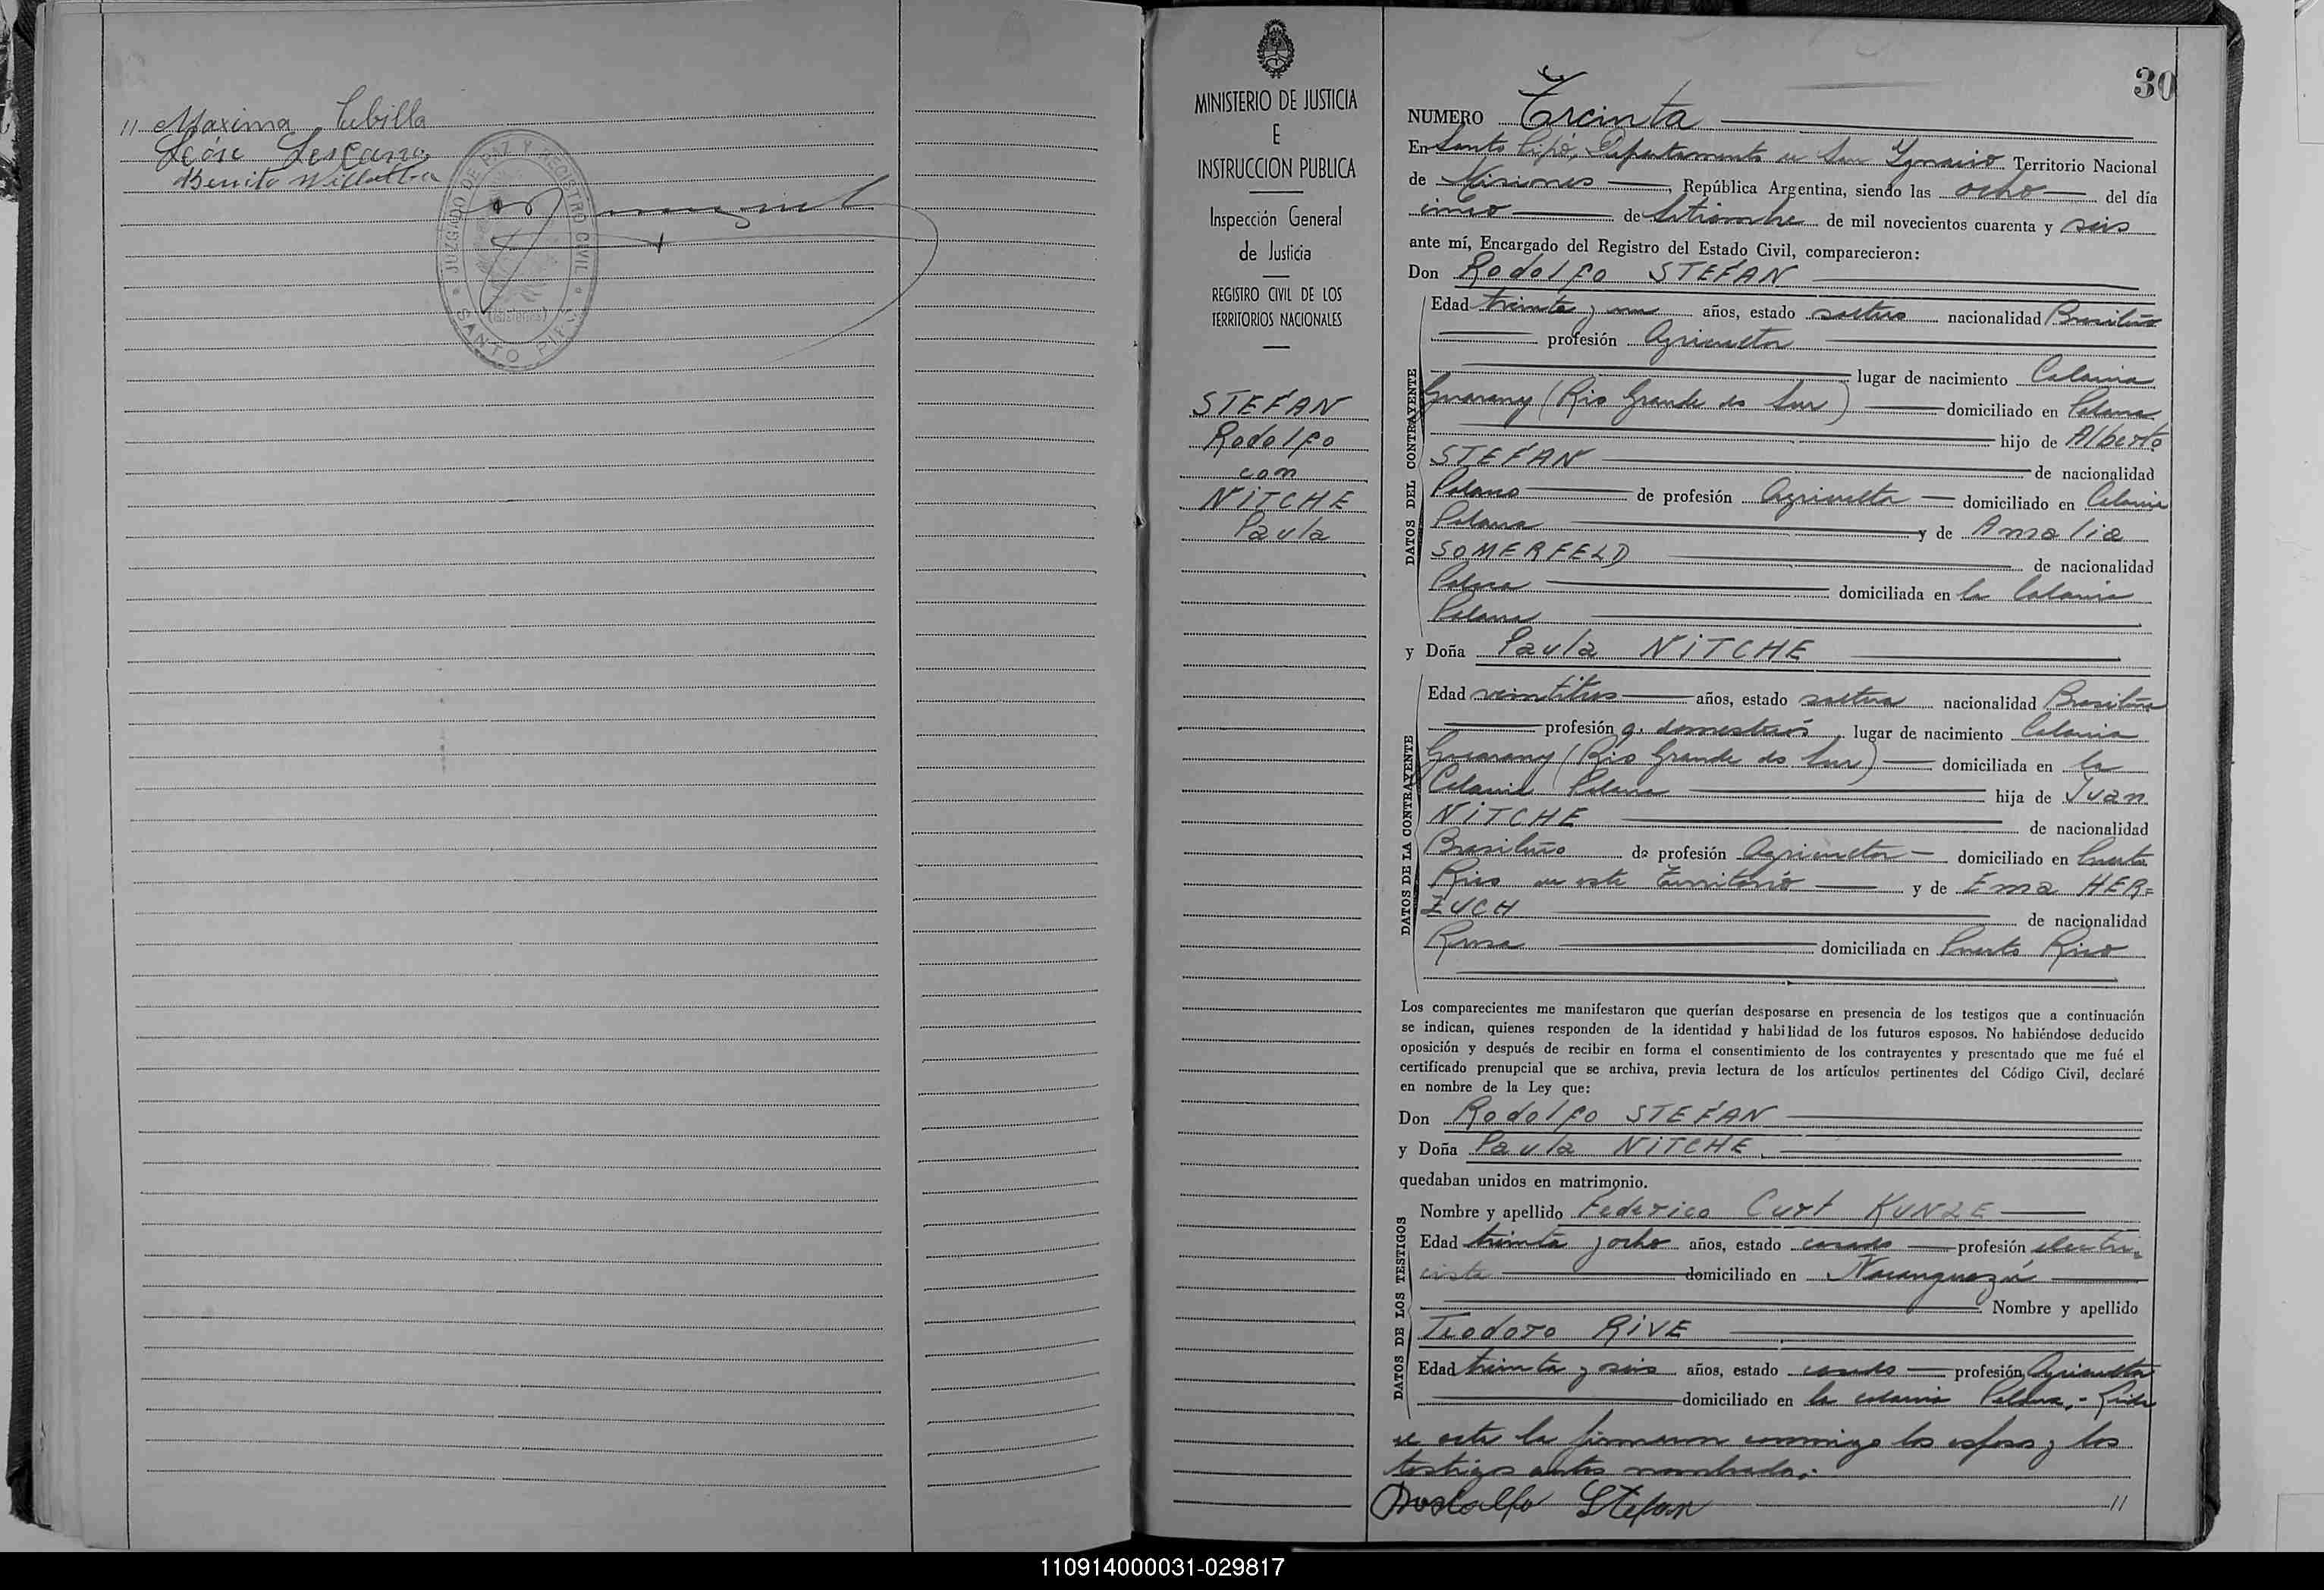 // Maxima Cubilla
León Lescano
Benito Villalba
JUZGADO DE PAZ Y REGISTRO CIVIL
SANTO PIPÓ
(MISIONES)
MINISTERIO DE JUSTICIA
E
INSTRUCCION PUBLICA
Inspección General
de Justicia
REGISTRO CIVIL DE LOS
TERRITORIOS NACIONALES
STEFAN
Rodolfo
con
NiTCHE
Paula
30
NUMERO Treinta
En Santo Pipó, Departamento de San Ygnacio Territorio Nacional
de Misiones, República Argentina, siendo las ocho del día
cinco de Setiembre de mil novecientos cuarenta y seis
ante mí, Encargado del Registro del Estado Civil, comparecieron:
Don Rodolfo STEFAN
DATOS DEL CONTRAYENTE
Edad treinta y un años, estado soltero nacionalidad Brasileño
profesión Agricultor
lugar de nacimiento Colonia
Guarany (Rio Grande do Sur) domiciliado en Polana
hijo de Alberto
STEFAN de nacionalidad
Polano de profesión Agricultor domiciliado en Colonia
Polana y de Amalia
SOMERFELD de nacionalidad
Polaca domiciliada en la Colonia
Polana
y Doña Paula NiTCHE
DATOS DE LA CONTRAYENTE
Edad veintitres años, estado soltera nacionalidad Brasileña
profesión q. domesticos lugar de nacimiento Colonia
Guarany (Rio Grande do Sur) domiciliada en la
Colonia Polana hija de Juan
NiTCHE de nacionalidad
Brasileño de profesión Agricultor domiciliado en Puerto
Rico de este Territorio y de Ema HER=
ZUCH de nacionalidad
Rusa domiciliada en Puerto Rico
Los comparecientes me manifestaron que querían desposarse en presencia de los testigos que a continuación
se indican, quienes responden de la identidad y habilidad de los futuros esposos. No habiéndose deducido
oposición y después de recibir en forma el consentimiento de los contrayentes y presentado que me fué el
certificado prenupcial que se archiva, previa lectura de los artículos pertinentes del Código Civil, declaré
en nombre de la Ley que:
Don Rodolfo STEFAN
y Doña Paula NiTCHE
quedaban unidos en matrimonio.
DATOS DE LOS TESTIGOS
Nombre y apellido Federico Curt KUNZE
Edad treinta y ocho años, estado casado profesión electri=
cista domiciliado en Ñacanguazú
Nombre y apellido
Teodoro RiVE
Edad treinta y seis años, estado casado profesión Agricultor
domiciliado en la colonia Polana.- Leida
el acta la firmaron conmigo los esposos y los
testigos antes nombrados.-
Rodolfo Stefan //
110914000031-029817